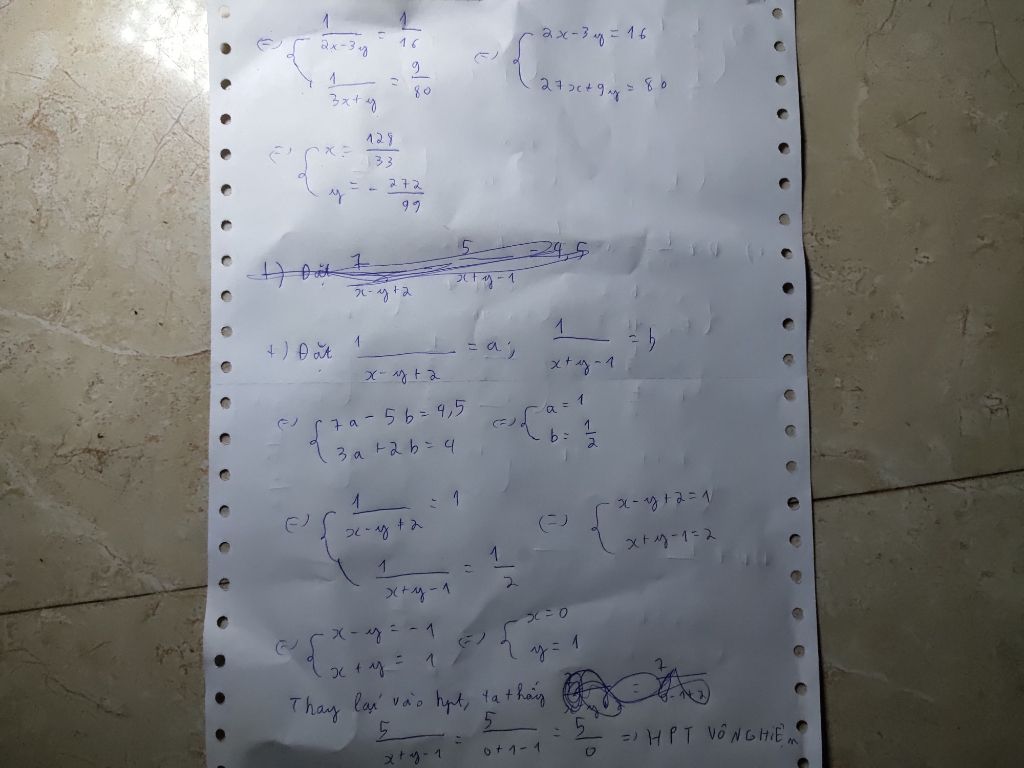 (=) { 1/(2x-3y) = 1/16 (=) { 2x-3y = 16
1/(3x+y) = 9/80 27x+9y = 80
(=) { x = 128/33
y = - 272/99
f) Đặt 7/(x-y+2) 5/(x+y-1) 4,5
f) Đặt 1/(x-y+2) = a; 1/(x+y-1) = b
(=) { 7a - 5b = 4,5 (=) { a = 1
3a + 2b = 4 b = 1/2
(=) { 1/(x-y+2) = 1 (=) { x-y+2 = 1
1/(x+y-1) = 1/2 x+y-1 = 2
(=) { x-y = -1 (=) { x = 0
x+y = 1 y = 1
Thay lại vào hpt, ta thấy
5/(x+y-1) = 5/(0+1-1) = 5/0 =) HPT VÔ NGHIỆM